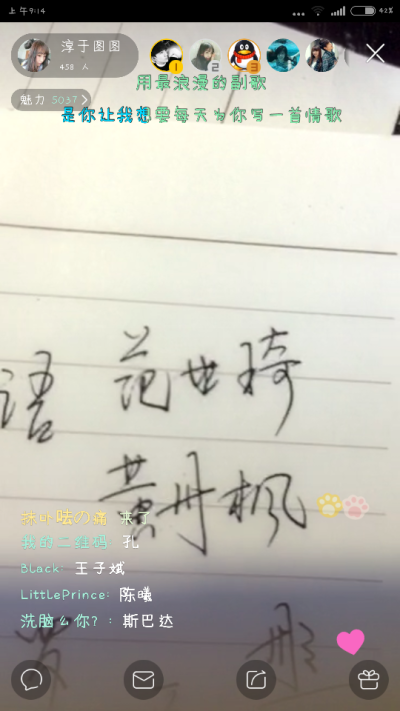 上午9:14
42%
淳于图图
458 人
1 2 3
用最浪漫的副歌
魅力 5037
是你让我想要每天为你写一首情歌
语 范世琦
黄丹枫
来了
我的二维码: 孔
BLack: 王子斌
LittlePrince: 陈曦
洗脑么你?: 斯巴达